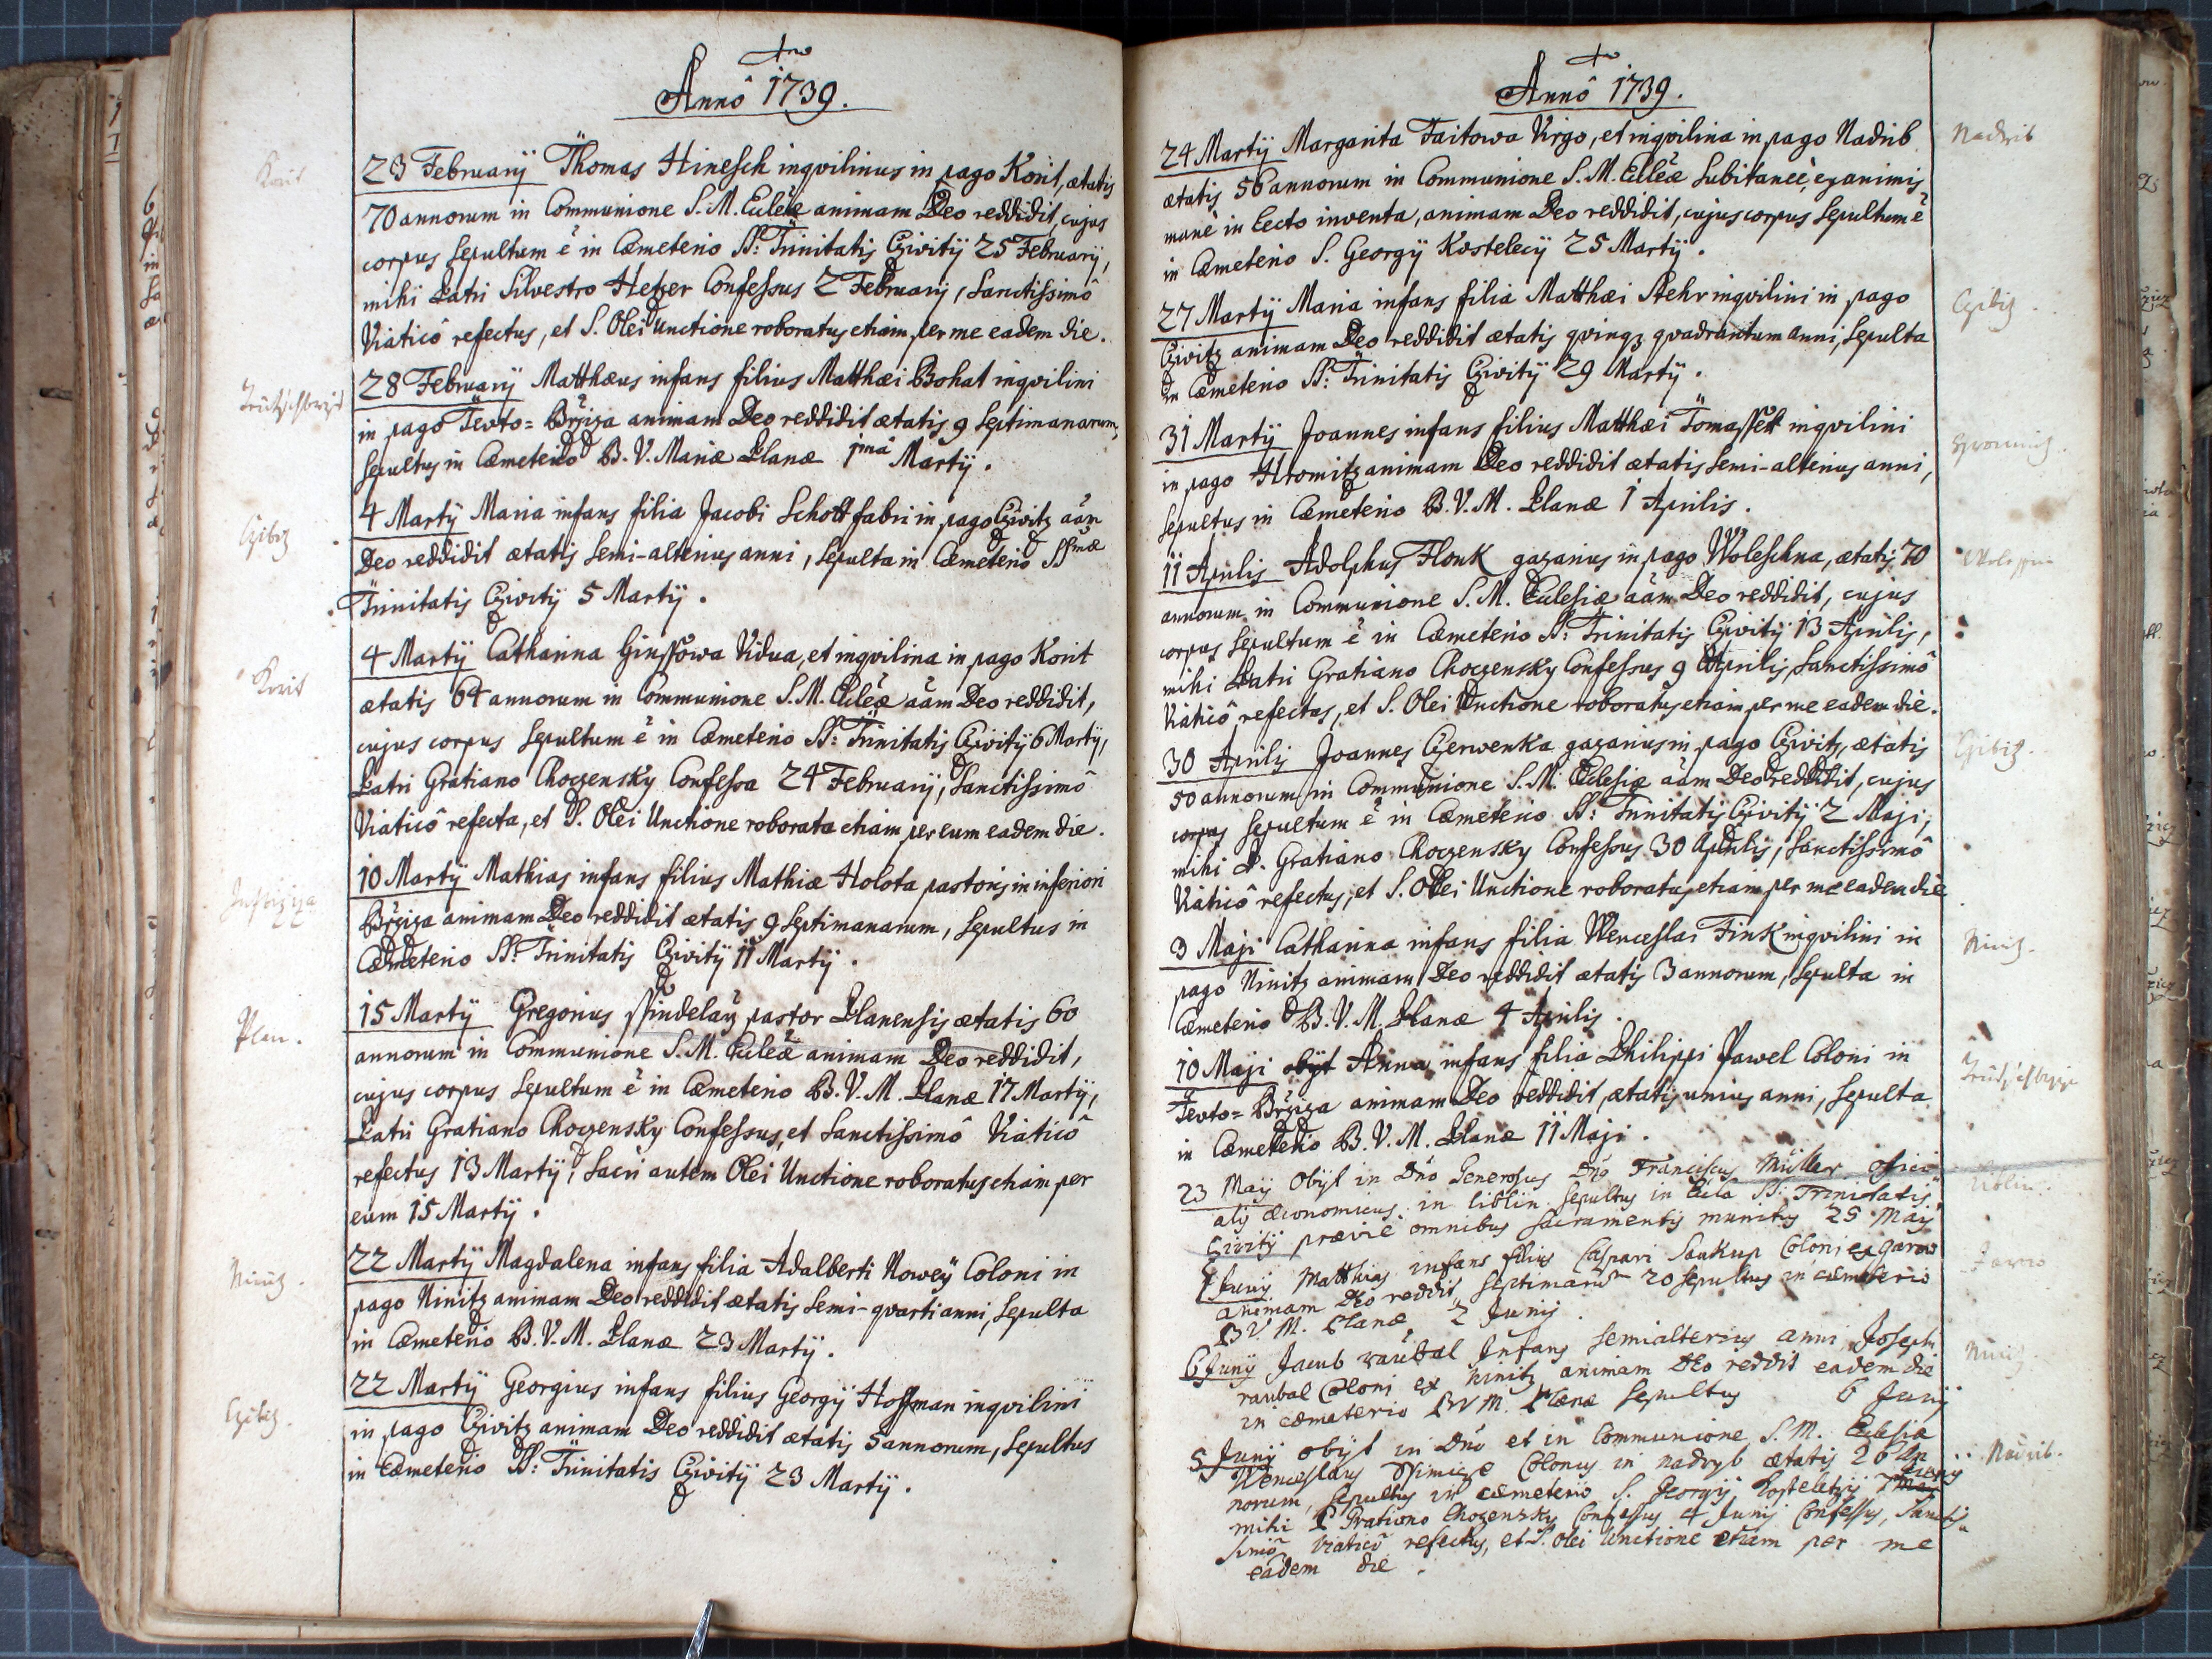 Annô 1739.
Korit
23 Februarÿ Thomas Hinesch inqvilinus in pago Korit, ætatis
70 annorum in Communione S. M. Eccleæ animam Deo reddidit, cujus
corpus sepultum ē in Cæmeterio SS: Trinitatis Czivitÿ 25 Februarÿ,
mihi Patri Silvestro Hetzer Confessus 2 Februarij, Sanctissimô
Viaticô refectus, et S. Olei Unctione roboratus etiam per me eadem die.
28 Februarÿ Matthæus infans filius Matthæi Bohat inqvilini
in pago Tevto=Bržiza animam Deo reddidit ætatis 9 Septimanarum,
sepultus in Cæmeterio B. V. Mariæ Planæ 1mâ Martÿ.
Czibiz
4 Martÿ Maria infans filia Jacobi Schott fabri in pago Czivitz aãm
Deo reddidit ætatis semi-alterius anni, sepulta in Cæmeterio SSmæ
Trinitatis Czivitÿ 5 Martÿ.
Korit
4 Martÿ Catharina Ginssowa Vidua, et inqvilina in pago Korit
ætatis 64 annorum in Communione S. M. Eccleæ aãm Deo reddidit,
cujus corpus sepultum ē in Cæmeterio SS: Trinitatis Czivitÿ 6 Martÿ,
Patri Gratiano Choczensky Confessa 24 Februarÿ, Sanctissimô
Viaticô refecta, et S. Olei Unctione roborata etiam per eum eadem die.
10 Martÿ Mathias infans filius Mathiæ Holota pastoris in inferiori
Bržiza animam Deo reddidit ætatis 9 Septimanarum, sepultus in
Cæmeterio SS: Trinitatis Czivitÿ 11 Martÿ.
Plan.
15 Martÿ Gregorius Sspindelarž pastor Planensis ætatis 60
annorum in Communione S. M. Eccleæ animam Deo reddidit,
cujus corpus sepultum ē in Cæmeterio B. V. M. Planæ 17 Martÿ,
Patri Gratiano Choczensky Confessus, et Sanctissimô Viaticô
refectus 13 Martÿ, Sacri autem Olei Unctione roboratus etiam per
eum 15 Martÿ.
Niniz.
22 Martÿ Magdalena infans filia Adalberti Nowey Coloni in
pago Ninitz animam Deo reddidit ætatis semi-qvarti anni, sepulta
in Cæmeterio B. V. M. Planæ 23 Martÿ.
Czibiz.
22 Martÿ Georgius infans filius Georgÿ Hoffman inqvilini
in pago Czivitz animam Deo reddidit ætatis 5 annorum, sepultus
in Cæmeterio SS: Trinitatis Czivitÿ 23 Martÿ.
Annô 1739.
Nadrib
24 Martÿ Margarita Taitowa Virgo, et inqvilina in pago Nadrib
ætatis 56 annorum in Communione S. M. Eccleæ subitaneè, exanimis
manè in lecto inventa, animam Deo reddidit, cujus corpus sepultum ē
in Cæmeterio S. Georgÿ Kostelecÿ 25 Martÿ.
Czibiz
27 Martÿ Maria infans filia Matthæi Stehr inqvilini in pago
Czivitz animam Deo reddidit ætatis qvinqz qvadrantum anni, sepulta
in Cæmeterio SS: Trinitatis Czivitÿ 29 Martÿ.
31 Martÿ Joannes infans filius Matthæi Tomassek inqvilini
in pago Hromitz animam Deo reddidit ætatis semi-alterius anni,
sepultus in Cæmeterio B. V. M. Planæ 1 Aprilis.
11 Aprilis Adolphus Flonk gazarius in pago Woleschna, ætatis 70
annorum in Communione S. M. Ecclesiæ aãm Deo reddidit, cujus
corpus sepultum ē in Cæmeterio SS: Trinitatis Czivitÿ 13 Aprilis,
mihi Patri Gratiano Choczensky Confessus 9 Aprilis, Sanctissimô
Viaticô refectus, et S. Olei Unctione roboratus etiam per me eadem die.
Czibiz.
30 Aprilis Joannes Czerwenka gazarius in pago Czivitz, ætatis
50 annorum in Communione S. M. Ecclesiæ aãm Deo reddidit, cujus
corpus sepultum ē in Cæmeterio SS: Trinitatis Czivitÿ 2 Maji,
mihi P. Gratiano Choczensky Confessus 30 Aprilis, Sanctissimô
Viaticô refectus, et S. Olei Unctione roboratus etiam per me eadem die
Niniz.
3 Maji Catharina infans filia Wenceslai Fink inqvilini in
pago Ninitz animam Deo reddidit ætatis 3 annorum, sepulta in
Cæmeterio B. V. M. Planæ 4 Aprilis.
10 Maji obÿt Anna infans filia Philippi Pawel Coloni in
Tevto=Bržiza animam Deo reddidit, ætatis unius anni, sepulta
in Cæmeterio B. V. M. Planæ 11 Maji.
Liblin.
23 Maÿ Obÿt in Dño Generosus Dño Franciscus Müller offici
alis œconomicus in liblin sepultus in Eccla SS: Trinitatis
Civitÿ præviè omnibus sacramentis munitus 25 Maÿ
Jarow
1 Junÿ Matthias infans filius Caspari Saukup Coloni ex Garow
animam Deo reddit septimanarum 20 sepultus in cæmeterio
B V. M. Planæ 2 Junij.
Niniz.
6 Junÿ Jacub raubal Infans semialterius anni Joseph
raubal Coloni ex Ninitz animam Deo reddit eadem die
in cæmeterio B V M. Planæ sepultus 6 Junij
Nadrib.
5 Junÿ obÿt in Dño et in Communione S. M. Eclesiæ
Wenceslaus Colonus in nadryb ætatis 26 an
norum, sepultus in cæmeterio S. Georgÿ Kosteletzÿ 7 Junij
mihi P Gratiano Chozensky Confessus 4 Junij Confessus, Sanctis
simô Viaticô refectus, et S. olei Unctione etiam per me
eadem die.